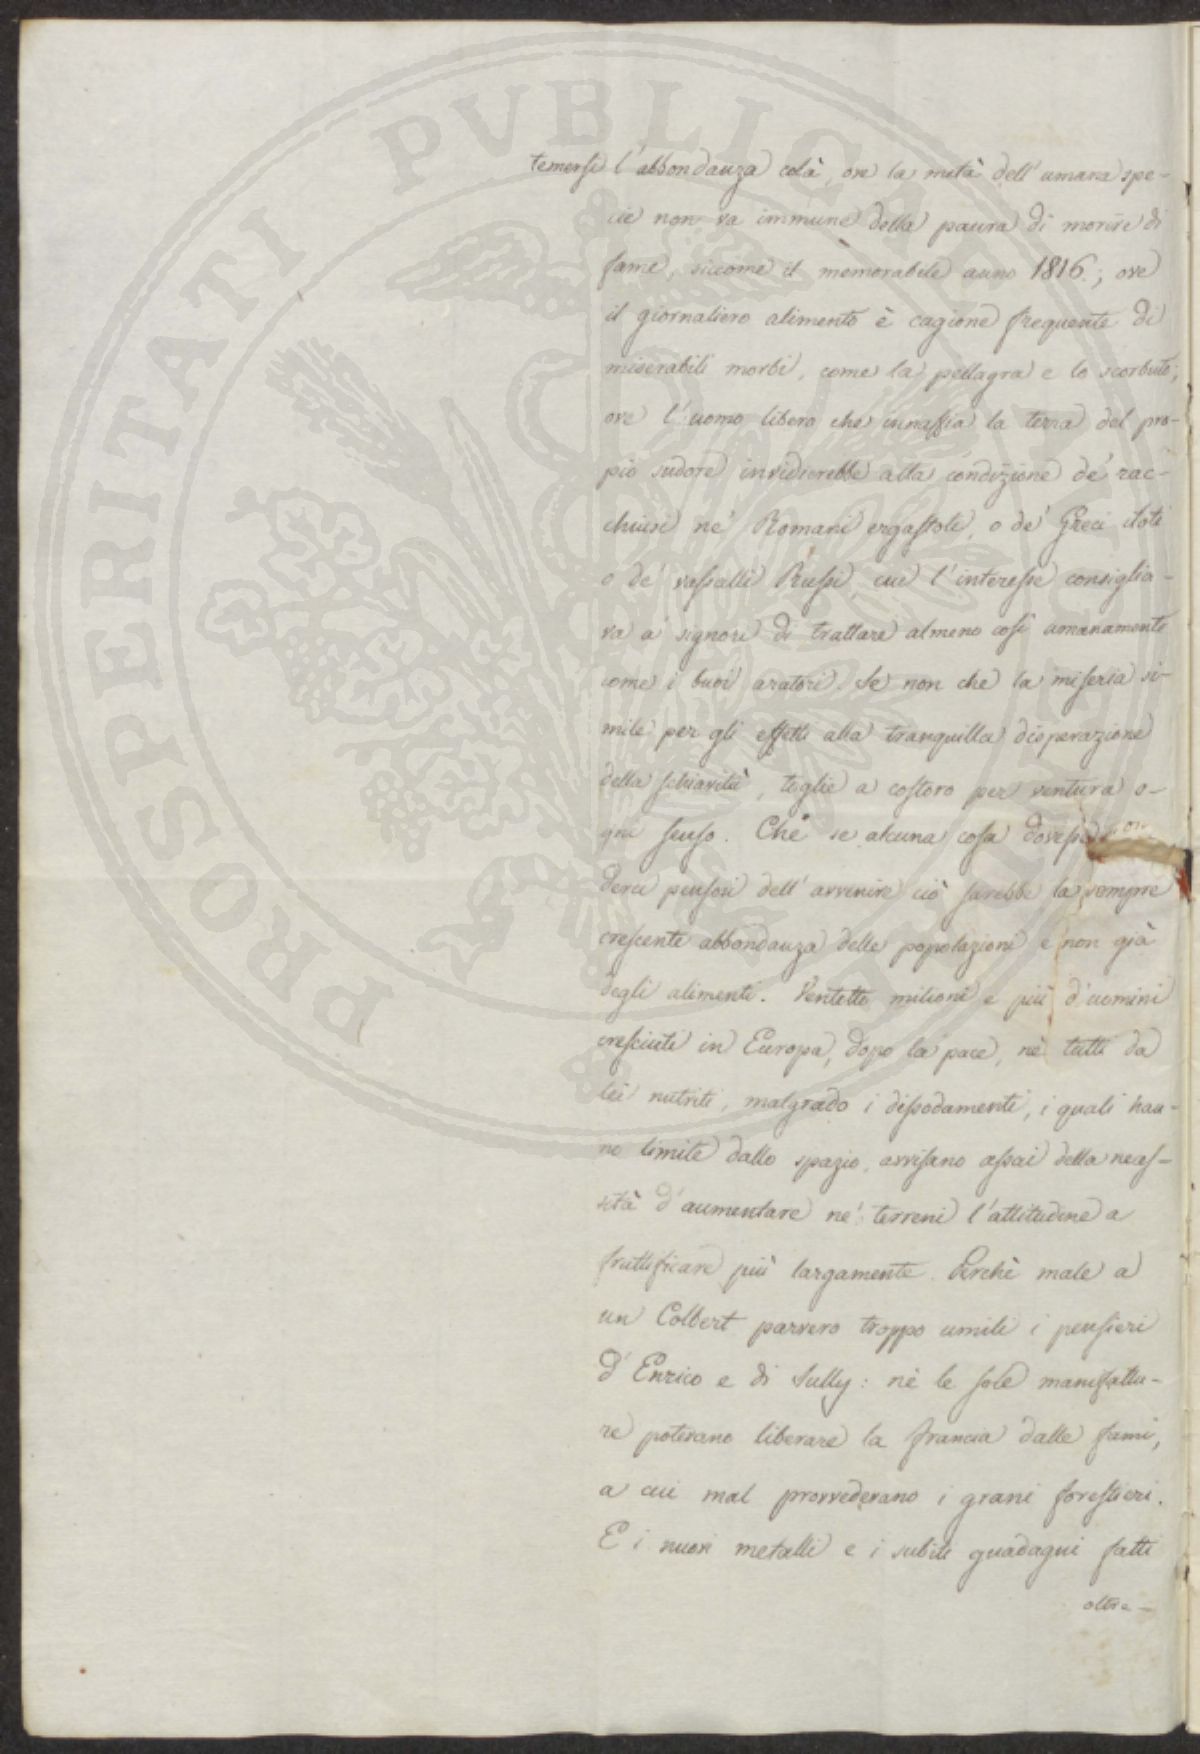 PROSPERITATI PVBLICAE
temersi l'abbondanza colà, ove la metà dell'umana spe-
cie non va immune della paura di morire di
fame, siccome il memorabile anno 1816; ove
il giornaliero alimento è cagione frequente di
miserabili morbi, come la pellagra e lo scorbuto;
ove l'uomo libero che innaffia la terra del pro-
pio sudore invidierebbe alla condizione de' rac-
chiusi ne' Romani ergastoli, o de' Greci iloti
o de' vassalli Russi, cui l'interesse consiglia-
va a' signori di trattare almeno così umanamente
come i buoi aratori. Se non che la miseria si-
mile per gli effetti alla tranquilla disperazione
della schiavitù, toglie a costoro per ventura o-
gni senso. Chè se alcuna cosa dovesse
derci pensosi dell'avvenire ciò sarebbe la sempre
crescente abbondanza delle popolazioni e non già
degli alimenti. Ventotto milioni e più d'uomini
cresciuti in Europa, dopo la pace, nè tutti da
lei nutriti, malgrado i dissodamenti, i quali han-
no limite dallo spazio, avvisano assai della neces-
sità d'aumentare ne' terreni l'attitudine a
fruttificare più largamente. Perchè male a
un Colbert parvero troppo umili i pensieri
d'Enrico e di Sully: nè le sole manifattu-
re potevano liberare la Francia dalle fami,
a cui mal provvedevano i grani forestieri.
E i nuovi metalli e i subiti guadagni fatti
oltre-